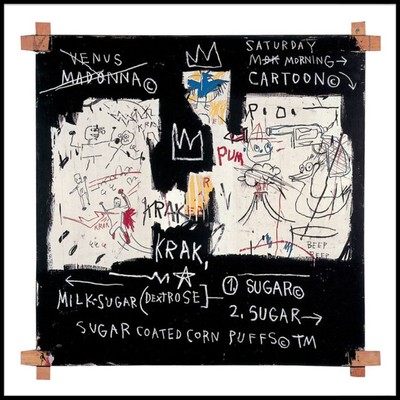 VENUS
MADONNA©
SATURDAY
MORNING→
CARTOON©
P.O.
PUM.
KRAK
R
KRAK,
MILK-SUGAR (DEXTROSE)
① SUGAR©
2. SUGAR→
SUGAR COATED CORN PUFFS© TM
BEEP
BEEP